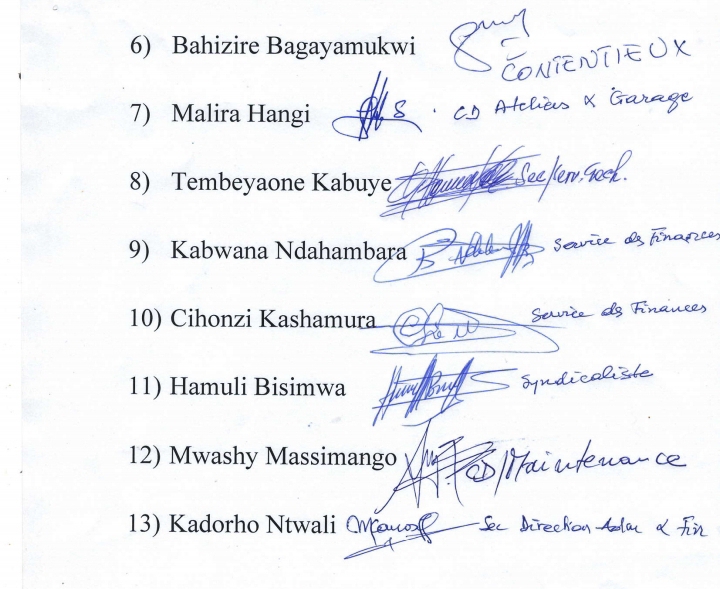 6) Bahizire Bagayamukwi CONTENTIEUX
7) Malira Hangi CD Ateliers & Garage
8) Tembeyaone Kabuye Sec/
9) Kabwana Ndahambara Service des Finances
10) Cihonzi Kashamura Service des Finances
11) Hamuli Bisimwa Syndicaliste
12) Mwashy Massimango CD/Maintenance
13) Kadorho Ntwali Sec Direction Adm & Fin